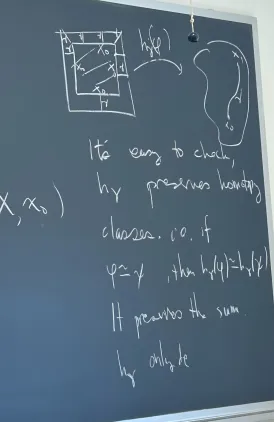 h_γ(φ)
X, x_0)
It's easy to check,
h_γ preserves homotopy
classes. i.e. if
φ ≃ ψ, then h_γ(φ) ≃ h_γ(ψ)
It preserves the sum.
h_γ only de